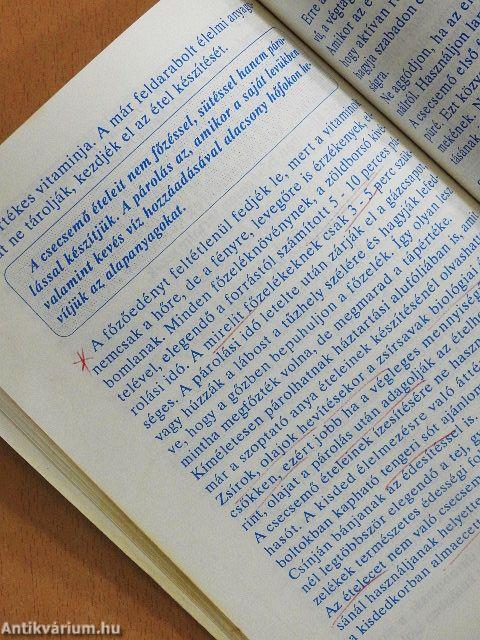 tékes vitaminja. A már feldarabolt élelmi anyag
t ne tárolják, kezdjék el az étel készítését.
A csecsemő ételeit nem főzéssel, sütéssel hanem páro-
lással készítjük. A párolás az, amikor a saját levükben
valamint kevés víz hozzáadásával alacsony hőfokon he-
vítjük az alapanyagokat.
A főzőedényt feltétlenül fedjék le, mert a vitaminok
nemcsak a hőre, de a fényre, levegőre is érzékenyek,
bomlanak. Minden főzeléknövénynek, a zöldborsó kivé-
telével, elegendő a forrástól számított 5 - 10 perces pá-
rolási idő. A mirelit főzelékeknek csak 2 - 5 perc szük-
séges. A párolási idő letelte után zárják el a gázcsapot
vagy húzzák a lábost a tűzhely szélére és hagyják lefed-
ve, hogy a gőzben bepuhuljon a főzelék. Így olyan lesz
mintha megfőzték volna, de megmarad a tápértéke.
Kíméletesen párolhatnak háztartási alufóliában is, amit
már a szoptató anya ételeinek készítésénél olvashat
Zsírok, olajok hevítésekor a zsírsavak
csökken, ezért jobb ha a végleges mennyiség
rint, olajat a párolás után adagolják az ételh
A csecsemő ételeinek ízesítésére ne haszn
hasót. A kisded élelmezésre való átté
boltokban kapható tengeri sót ajánlom
Csínján bánjanak az édesítéssel is.
nél legtöbbször elegendő a tej, g
zelékek természetes édessége.
Az ételecet nem való csecsem
sánál használjanak helyette
a kisdedkorban almaecet
Erre
vú, a végtag
Amikor az é
hogy aktívan r
hagyja szabadon
súra.
Ne aggódjon, ha az er
rülről. Használjon la
A csecsemő első
püre. Ezt közv
metének. N
tásának
Antikvárium.hu